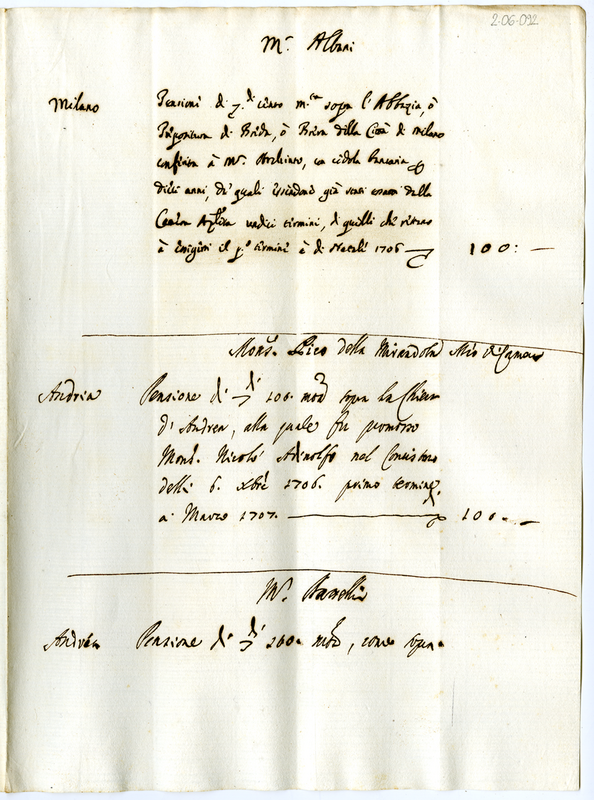 2-06-092
Mr. Albani
Milano
Pensioni di cento mta sopra l'Abbazia, ò
Prepositura di Breda, ò Brera della Città di Milano
conferita à Mr. Archinto, con cedola bancaria
dieci anni, de' quali essendone già
Camera undici termini, di quelli che restano
à esigersi il po termine è di Natale 1706 100: —
Monsr. Pico della Mirandola Mro di Camera
Andria
Pensione di 100. mta sopra la Chiesa
d'Andrea, alla quale fu promosso
Monsr. Nicolò Adinolfo nel Concistoro
delli 6. Xbre 1706. primo termine
a Marzo 1707. — 100. —
Mr.
Andria
Pensione di 100. mta, come sopra